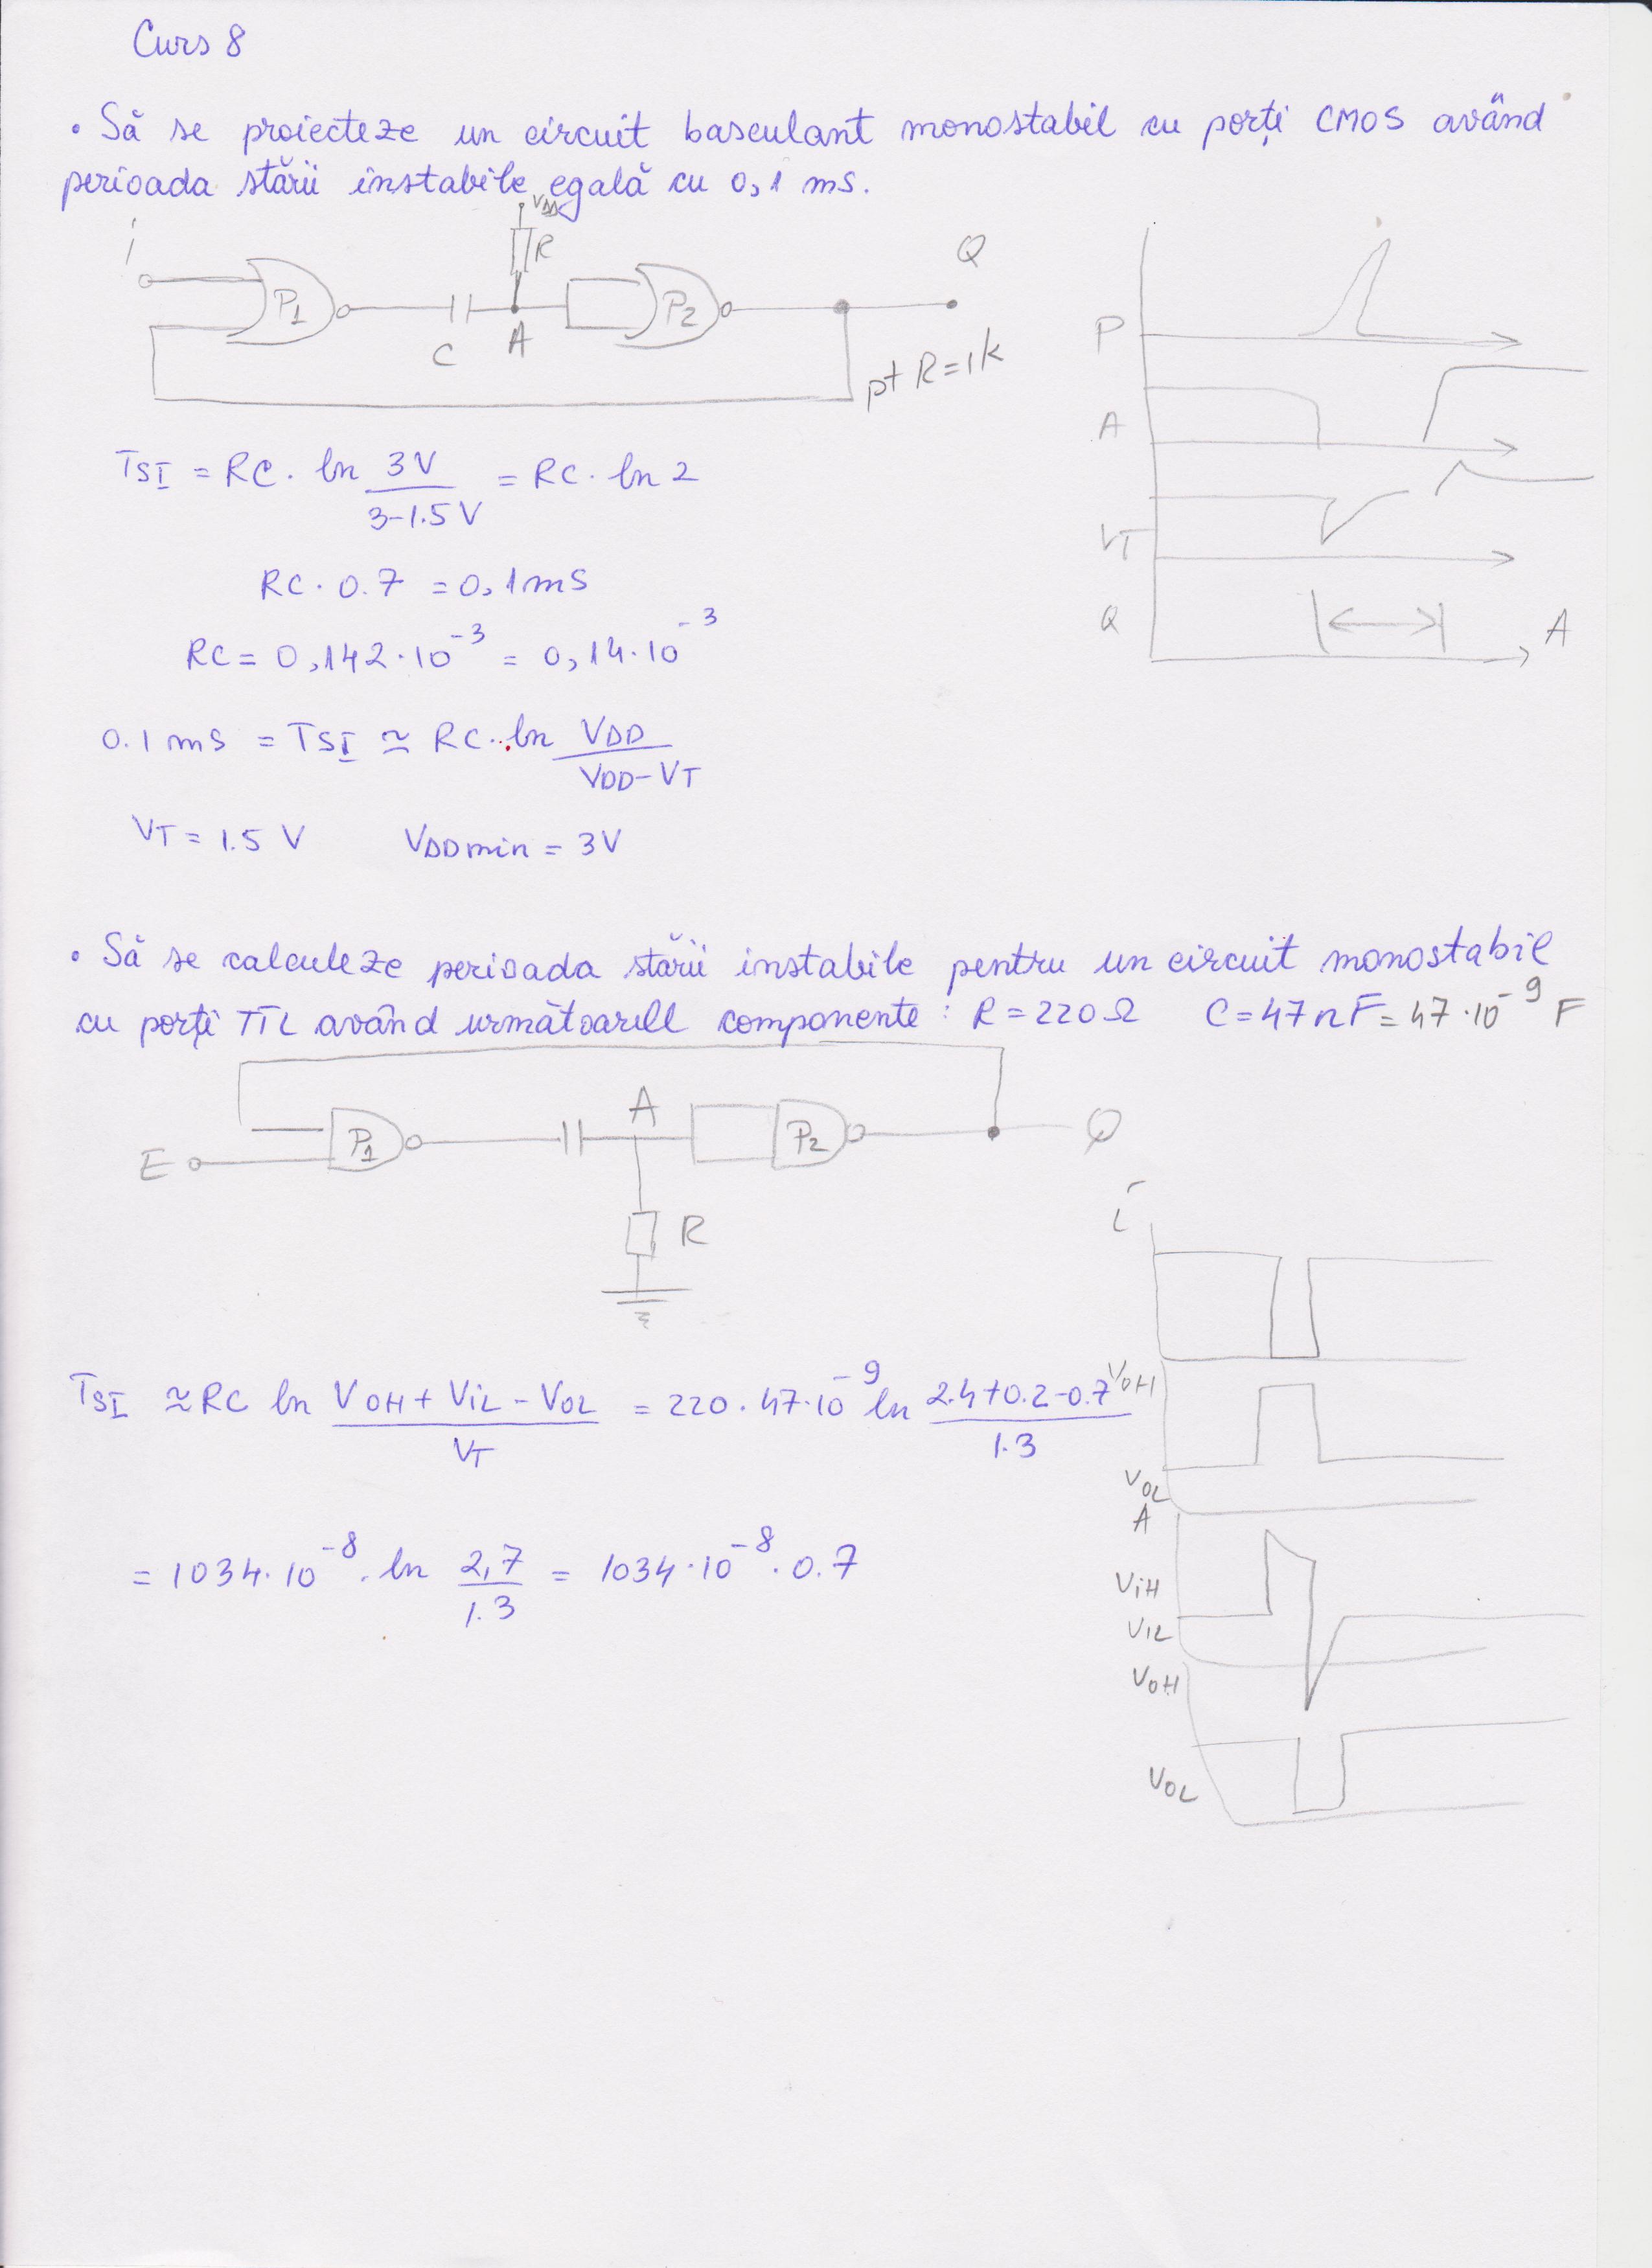 Curs 8
• Să se proiecteze un circuit basculant monostabil cu porți CMOS având
perioada stării instabile egală cu 0,1 ms.
VDD
i
R
Q
P1
P2
C
A
pt R=1k
P
A
VT
Q
A
TSI = RC. ln 3V / 3-1.5V = RC. ln 2
RC. 0.7 = 0,1ms
RC = 0,142.10^-3 = 0,14.10^-3
0.1 ms = TSI ≃ RC. ln VDD / VDD-VT
VT = 1.5 V VDDmin = 3V
• Să se calculeze perioada stării instabile pentru un circuit monostabil
cu porți TTL având următoarele componente: R=220Ω C=47nF=47.10^-9 F
A
P1
P2
Q
E
R
i
TSI ≃ RC ln VOH + ViL - VOL / VT = 220.47.10^-9 ln 2.4+0.2-0.7 / 1.3
VOH
VOL
A
ViH
VIL
VOH
VOL
= 1034.10^-8. ln 2,7 / 1.3 = 1034.10^-8. 0.7